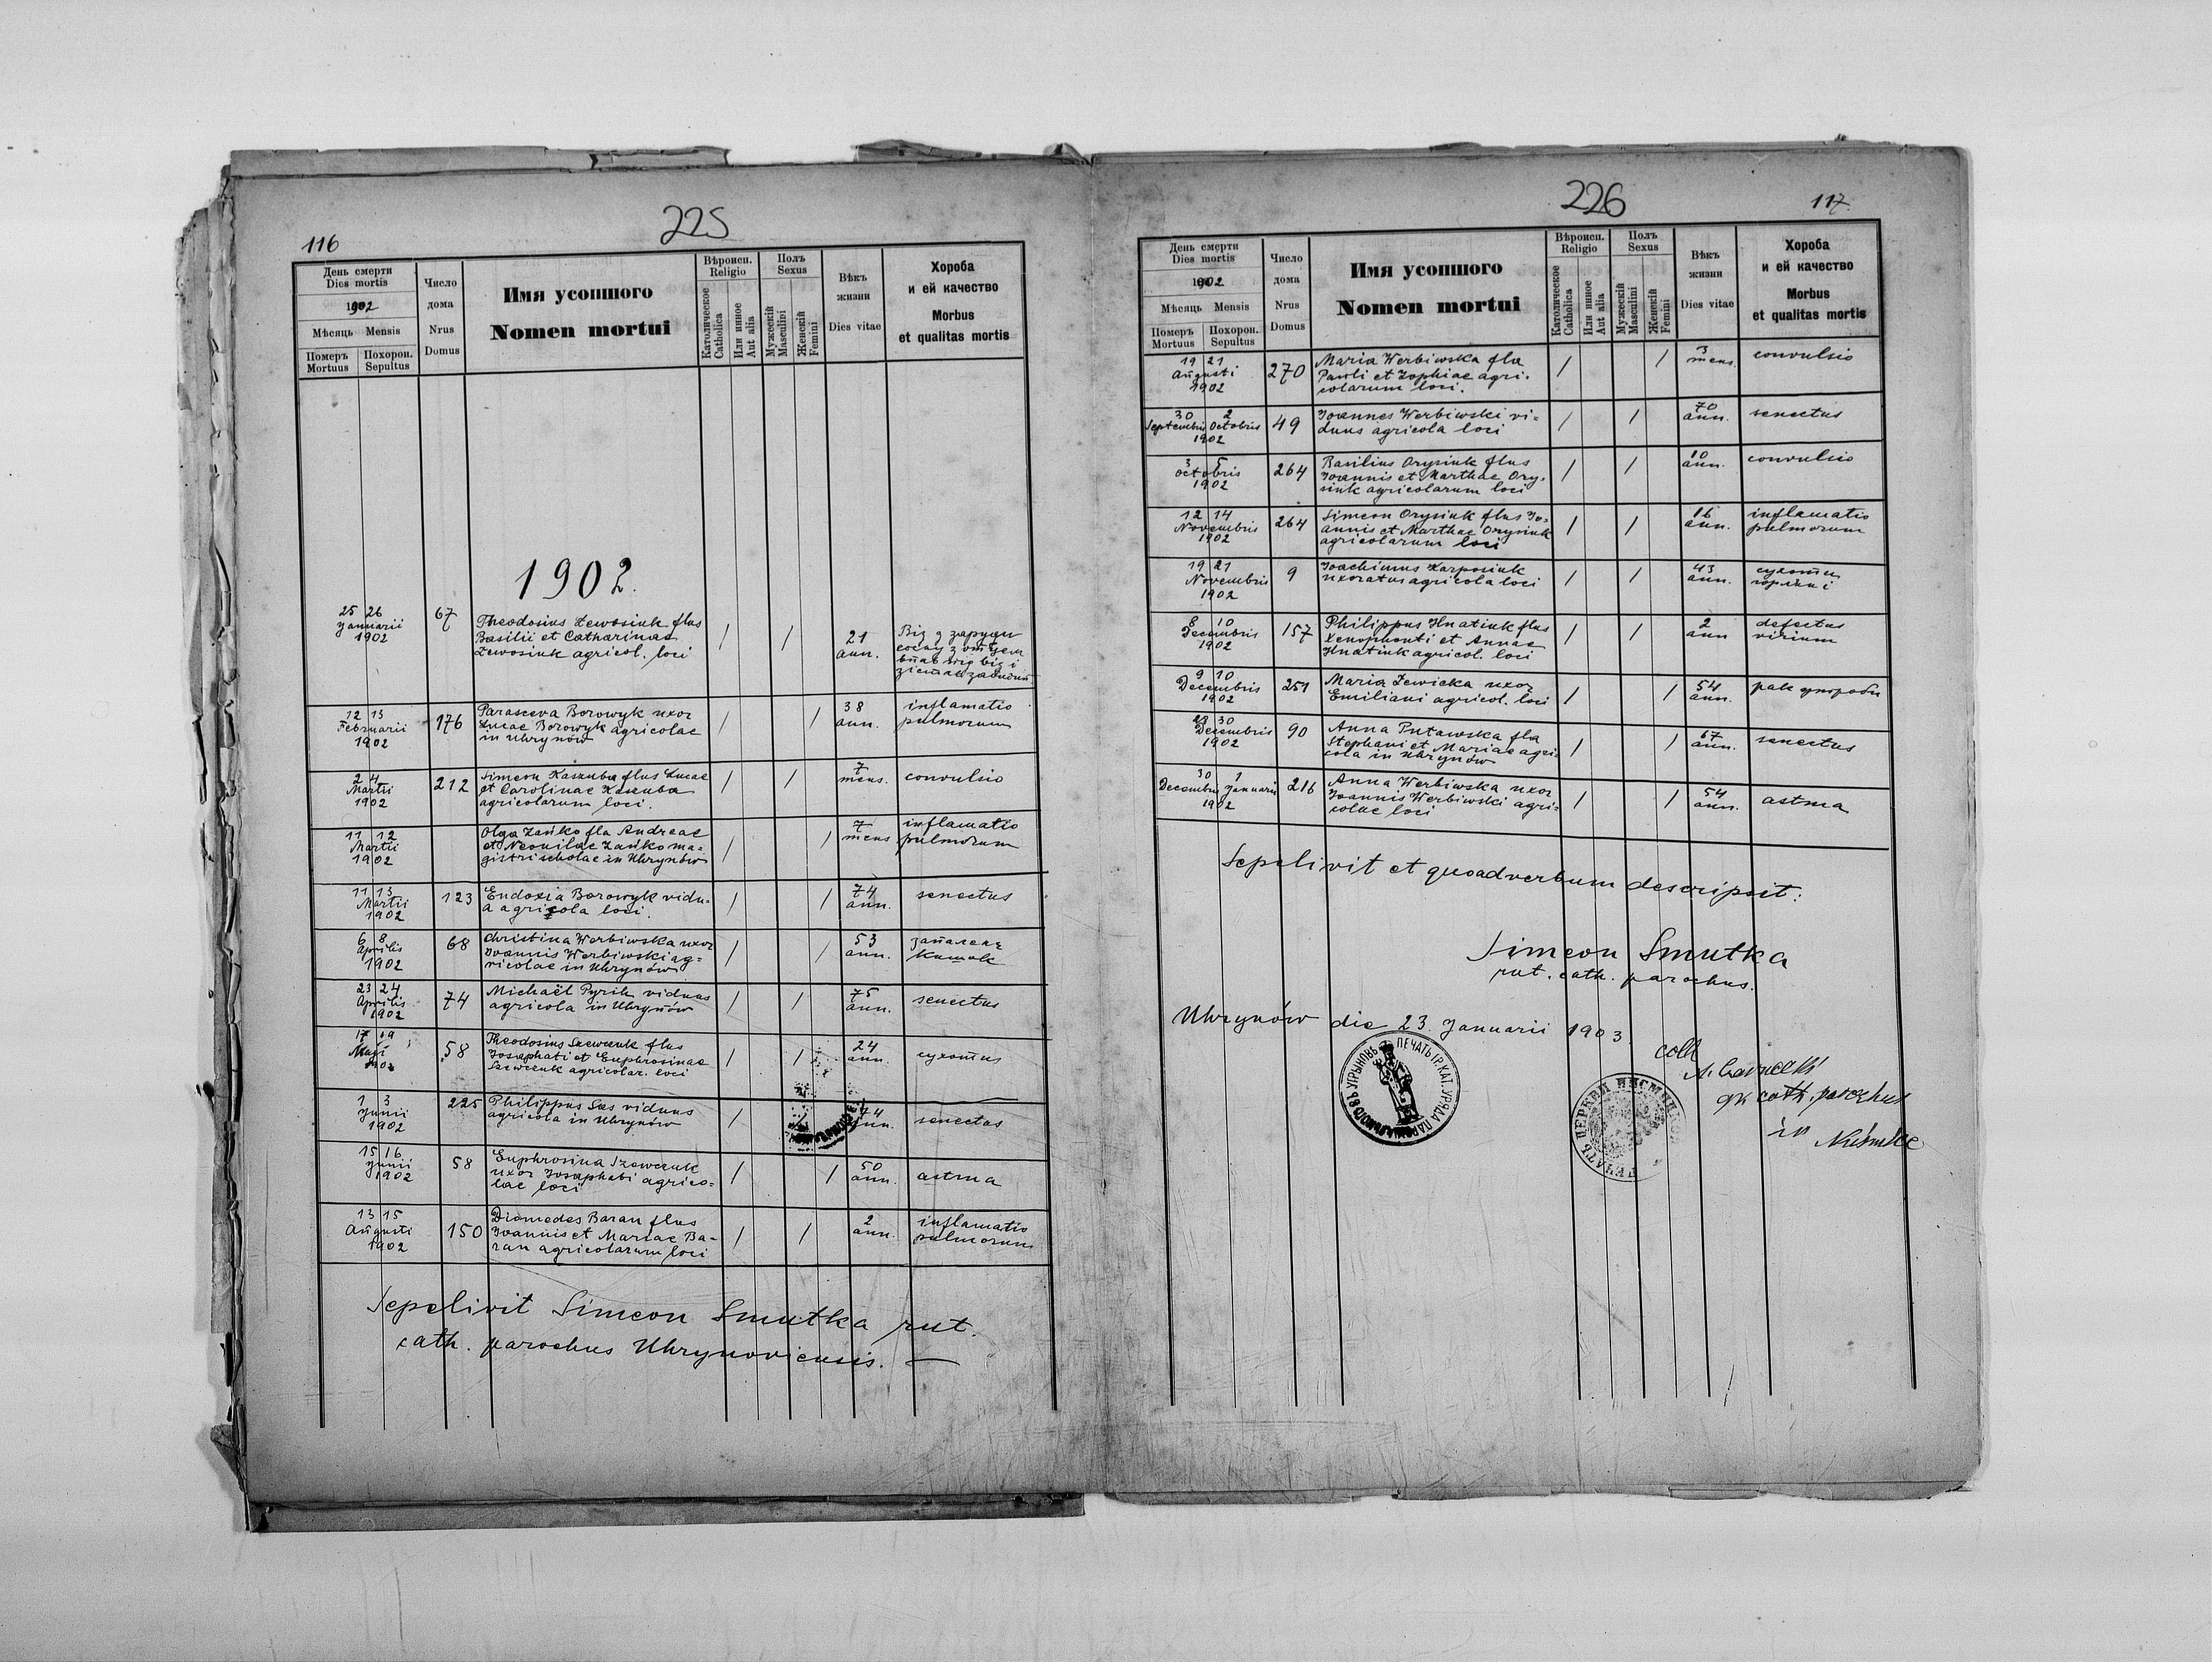 225
116
День смерти
Dies mortis
1902
Мѣсяць Mensis
Померъ Mortuus
Похорон. Sepultus
Число дома
Nrus Domus
Имя усопшого
Nomen mortui
Вѣроисп.
Religio
Католическое Catholica
Или инное Aut alia
Полъ
Sexus
Мужескій Masculini
Женскій Femini
Вѣкъ жизни
Dies vitae
Хороба
и ей качество
Morbus
et qualitas mortis
1902.
25 26
Januarii
1902
67
Theodosius Lewosiuk flus
Basilii et Catharinae
Lewosiuk agricol. loci
/ /
21
ann.
Віз з
12 13
Februarii
1902
176
Parasceva Borowyk uxor
Lucae Borowyk agricolae
in Uhrynów
/ /
38
ann.
inflamatio
pulmorum
2 4
Martii
1902
212
Simeon Kaszuba flus Lucae
et Carolinae Kaszuba
agricolarum loci.
/ /
7
mens.
convulsio
11 12
Martii
1902
Olga Zańko fla Andreae
et Neonilae Zańko ma=
gistri scholae in Uhrynów
/ /
7
mens
inflamatio
pulmorum
11 13
Martii
1902
123
Eudoxia Borowyk vidu=
a agricola loci.
/ /
74
ann.
senectus
6 8
Aprilis
1902
68
Christina Werbiwska uxor
Joannis Werbiwski ag=
ricolae in Uhrynów
/ /
53
ann.
запалене
кишок
23 24
Aprilis
1902
74
Michaël Pyrih viduus
agricola in Uhrynów
/ /
75
ann.
senectus
17 19
Maji
1902
58
Theodosius Szewczuk flus
Josaphati et Euphrosinae
Szewczuk agricolar. loci
/ /
24
ann.
сухоти
1 3
Junii
1902
225
Philippus Sas viduus
agricola in Uhrynów
/
74
ann.
senectus
15 16
Junii
1902
58
Euphrosina Szewczuk
uxor Josaphati agrico=
lae loci
/ /
50
ann.
astma
13 15
Augusti
1902
150
Diomedes Baran flus
Joannis et Mariae Ba=
ran agricolarum loci
/ /
2
ann.
inflamatio
pulmorum
Sepelivit Simeon Smutka rut.
cath. parochus Uhrynoviensis. —
226
117
День смерти
Dies mortis
1902
Мѣсяць Mensis
Померъ Mortuus
Похорон. Sepultus
Число дома
Nrus Domus
Имя усопшого
Nomen mortui
Вѣроисп.
Religio
Католическое Catholica
Или инное Aut alia
Полъ
Sexus
Мужескій Masculini
Женскій Femini
Вѣкъ жизни
Dies vitae
Хороба
и ей качество
Morbus
et qualitas mortis
19 21
Augusti
1902
270
Maria Werbiwska fla
Pauli et Zophiae agri=
colarum loci.
/ /
3
mens.
convulsio
30 2
Septembris Octobris
1902
49
Joannes Werbiwski vi=
duus agricola loci
/ /
70
ann.
senectus
3 5
Octobris
1902
264
Basilius Orysiuk flus
Joannis et Marthae Ory=
siuk agricolarum loci
/ /
10
ann.
convulsio
12 14
Novembris
1902
264
Simeon Orysiuk flus Jo=
annis et Marthae Orysiuk
agricolarum loci
/ /
16
ann.
inflamatio
pulmorum
19 21
Novembris
1902
9
Joachimus Karposiuk
uxoratus agricola loci
/ /
43
ann.
сухоти
горляні
8 10
Decembris
1902
157
Philippus Hnatiuk flus
Xenophonti et Annae
Hnatiuk agricol. loci
/ /
2
ann
defectus
virium
9 10
Decembris
1902
251
Maria Lewicka uxor
Emiliani agricol. loci
/ /
54
ann.
рак
30
Decembris
1902
90
Anna Putawska fla
Stephani et Mariae agri=
cola in Uhrynów
/ /
67
ann.
senectus
30 1
Decembris Januarii
1902
216
Anna Werbiwska uxor
Joannis Werbiwski agri=
colae loci
/ /
54
ann.
astma
Sepelivit et quoad verbum descripsit:
Simeon Smutka
rut. cath. parochus.
Uhrynów die 23. Januarii 1903.
ПЕЧАТЬ ГР. КАТ. УРЯДА ПАРОХІАЛЬНОГО ВЪ УГРЫНОВЪ
coll
gr cath. parochus
in
ПЕЧАТЬ ЦЕРКВИ